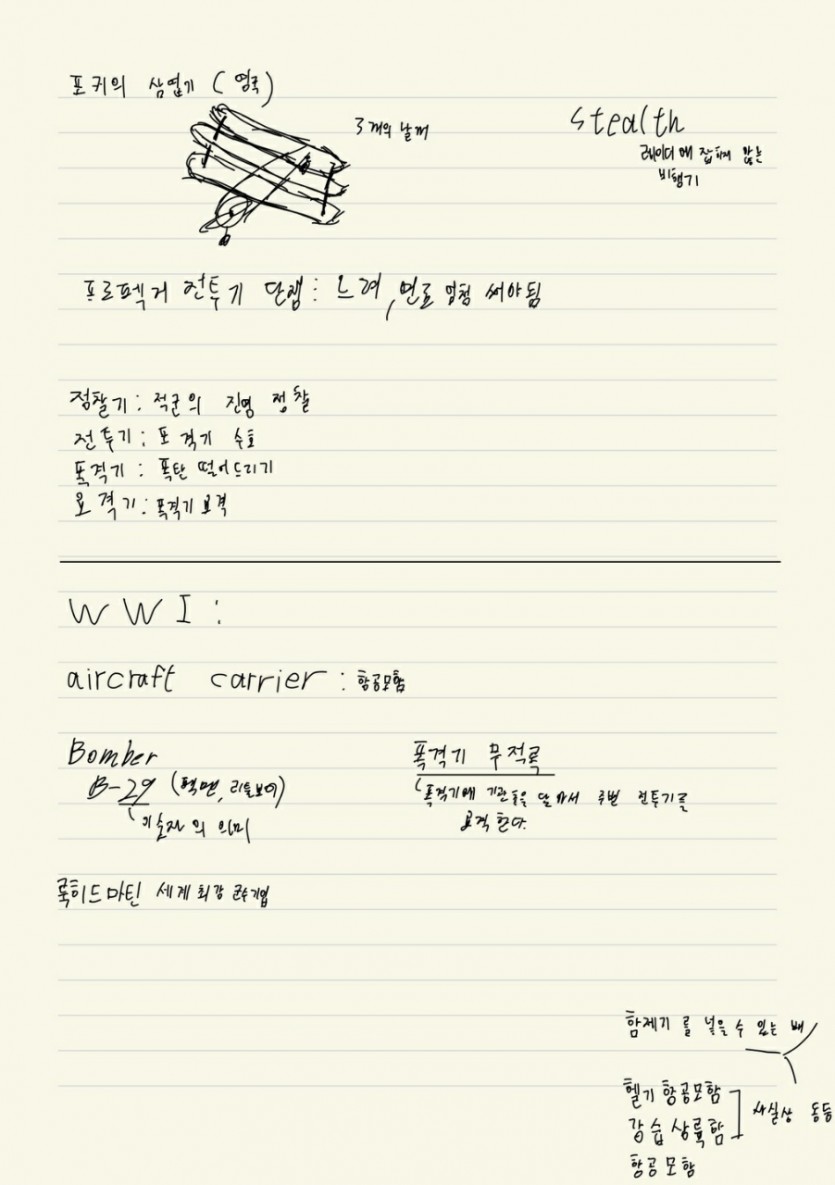 포커의 삼엽기 (영국)
3개의 날개
stealth
레이더에 잡히지 않는
비행기
프로펠러 전투기 단점: 느려, 연료 엄청 써야됨
정찰기: 적군의 진영 정찰
전투기: 폭격기 수호
폭격기: 폭탄 떨어드리기
요격기: 폭격기 요격
WWI:
aircraft carrier: 항공모함
Bomber
B-29 (팻맨, 리틀보이)
의 의미
폭격기 무적론
폭격기에 기관총을 달아서 주변 전투기를
요격한다.
록히드마틴 세계최강 군수기업
함제기를 넣을 수 있는 배
헬기 항공모함
강습상륙함
사실상 동등
항공모함